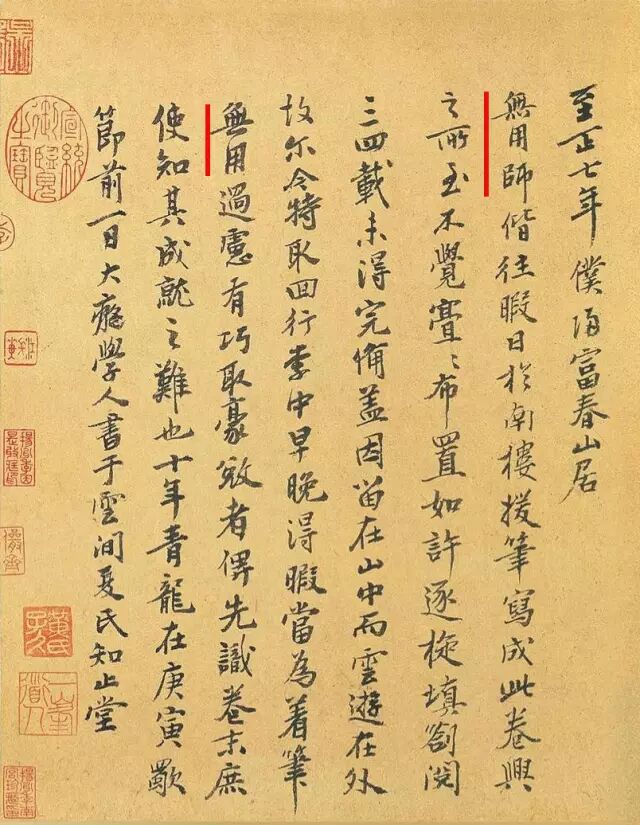 至正七年僕歸富春山居
無用師偕往暇日於南樓援筆寫成此卷興
之所至不覺亹亹布置如許逐旋填劄閱
三四載未得完備盖因留在山中而雲遊在外
故尔今特取回行李中早晚得暇當為着筆
無用過慮有巧取豪敚者俾先識卷末庶
使知其成就之難也十年青龍在庚寅歜
節前一日大癡學人書于雲間夏氏知止堂
宣統御覽之寶